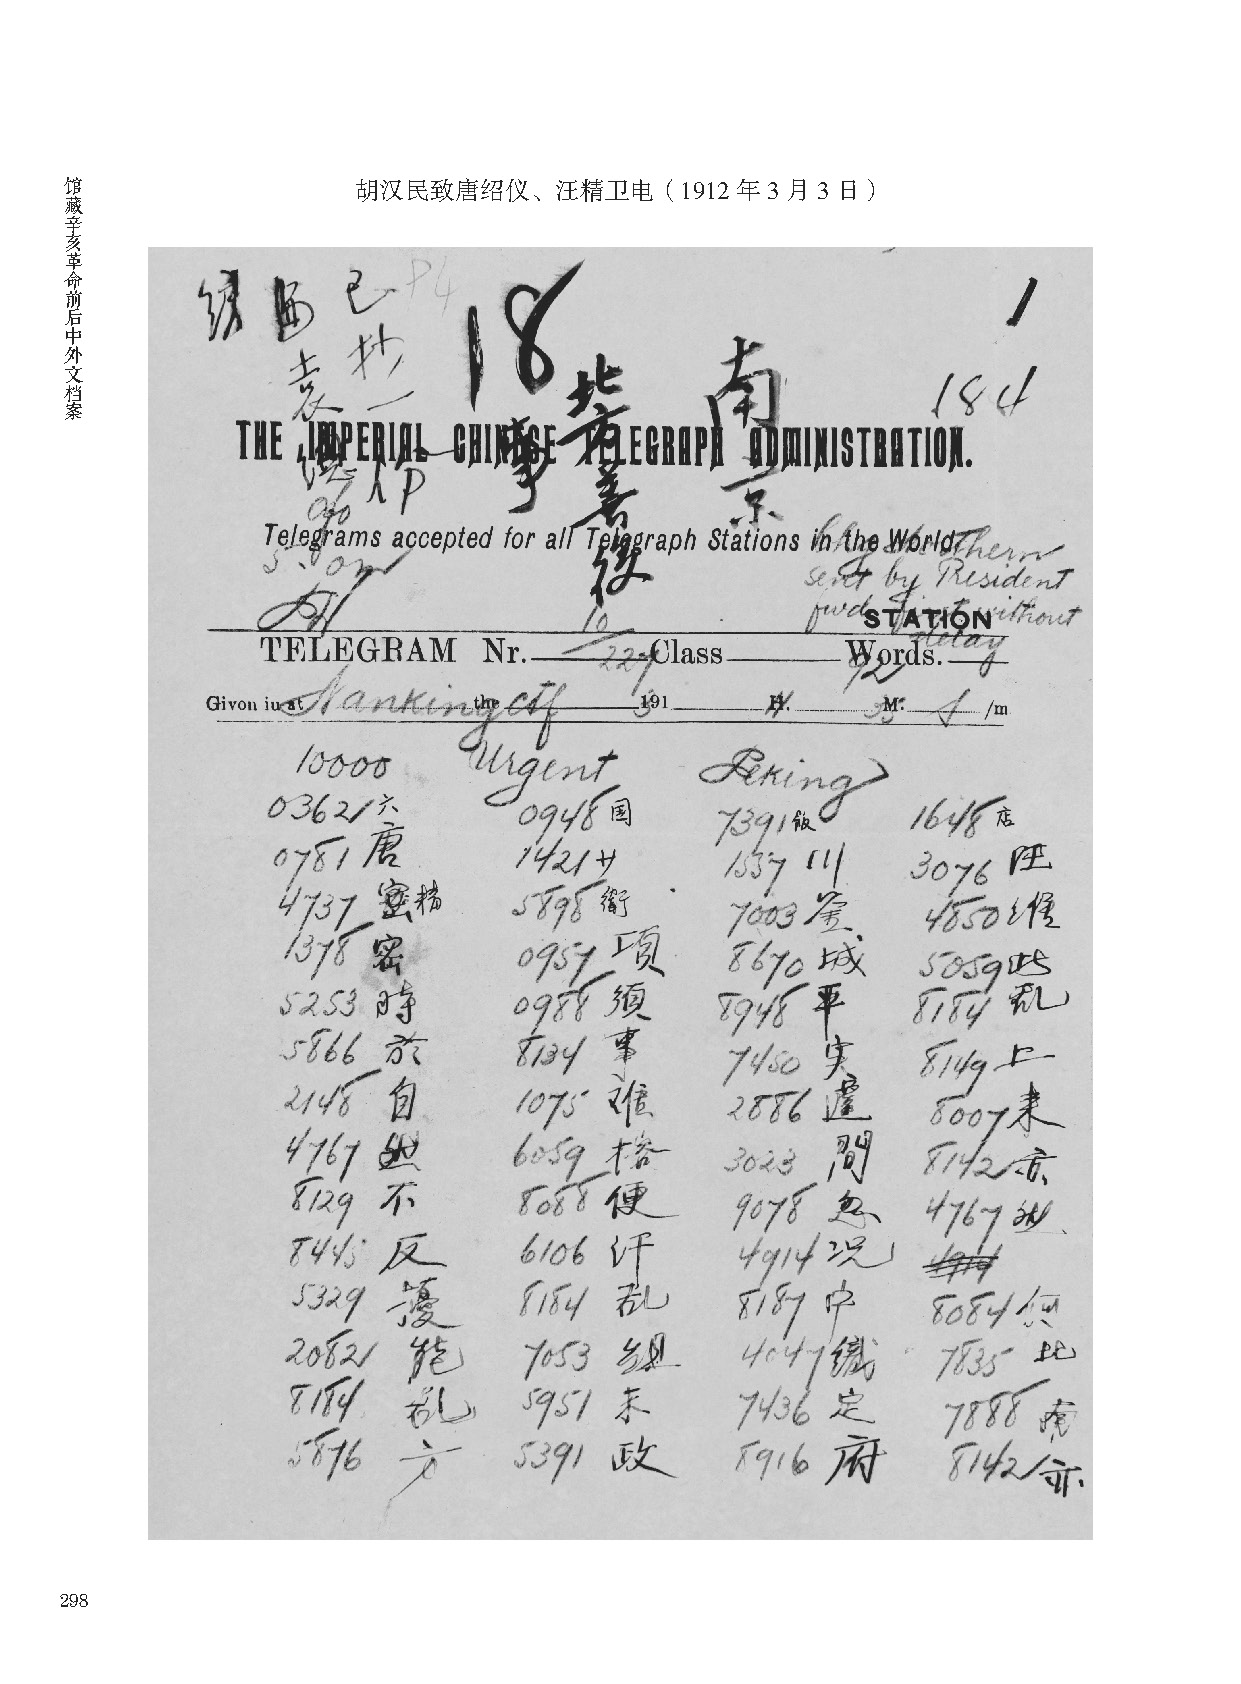 馆藏辛亥革命前后中外文档案
胡汉民致唐绍仪、汪精卫电（1912 年 3 月 3 日）
已 P4
抄
袁
18
1
184
南
京
北方善後
事
THE IMPERIAL CHINESE TELEGRAPH ADMINISTRATION.
Telegrams accepted for all Telegraph Stations in the World.
sent by Resident
fwd without
delay
STATION
10
TELEGRAM Nr. 227 Class Words. 82
Givon iu at Nanking the 3 191 H. M. 35 /m
10000 Urgent Peking
0362 六 0948 国 7391 飯 1648 店
0781 唐 1421 廿 1537 川 3076 汪
4737 精 5898 衛 7003 釜 4850
1378 密 0957 項 8670 城 5059 此
5253 時 0988 須 8948 平 8184 乱
5866 於 8134 事 7450 実 8149 上
2148 自 1075 难 2886 8007 来
4767 6059 榕 3023 間 8142 亦
8129 不 8088 便 9078 忽 4767
8445 反 6106 汗 4914 况 4914
5329 擾 8184 乱 8187 中 8084 何
2082 能 7053 組 4047 織 7835 比
8184 乱 5951 未 7436 定 7888 南
5876 方 5391 政 8916 府 8142 亦
298